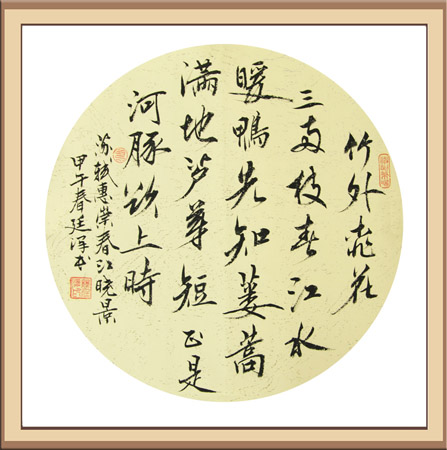 竹外桃花
三两枝春江水
暖鴨先知蔞蒿
滿地芦芽短正是
河豚欲上時
苏轼惠崇春江晓景
甲午春廷书